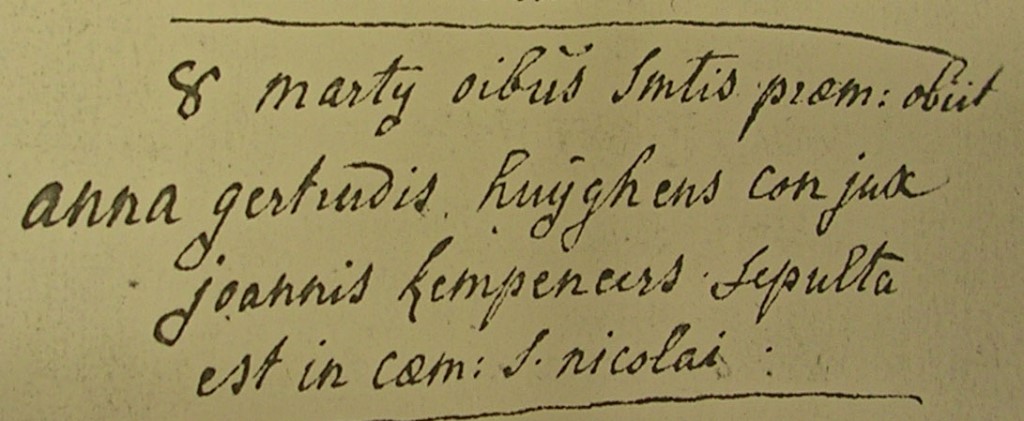 8 marty oibūs Smtis præm: obiit
anna gertrudis huÿghens conjux
joannis kempeneers sepulta
est in cœm: S. nicolai :